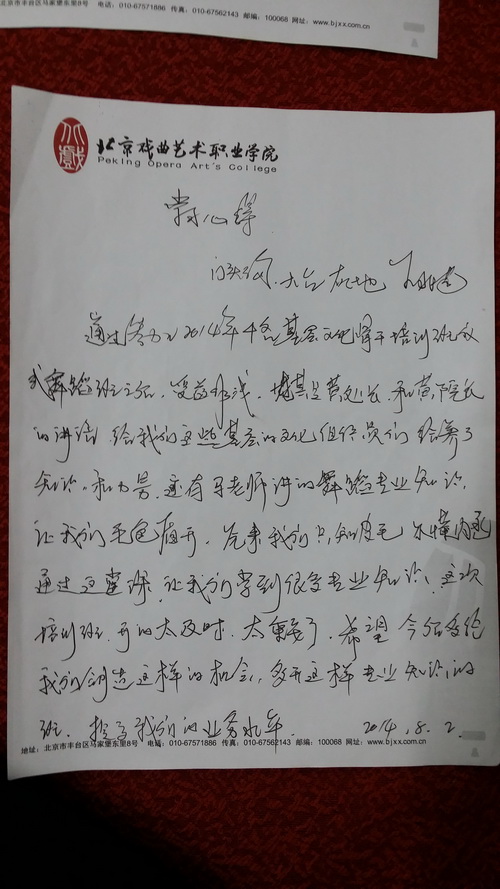 北京市丰台区马家堡东里8号 电话:010-67571886 传真:010-67562143 邮编:100068 网址:www.bjxx.com.cn
北京戏曲艺术职业学院
Peking Opera Art's College
学习心得
门头沟
通过参加2014年 基层文化骨干培训班
舞蹈班 受益非浅
的讲话 给我们这些基层的文化组织员们
知识 和力量 还有马老师讲的舞蹈专业知识
让我们 原来我们只知皮毛 不懂内涵
通过这堂课 让我们学到很多专业知识 这次
培训班 开的太及时 太重要了 希望今后多给
我们创造这样的机会 多开这样专业知识的
班 提高我们的业务水平 2014.8.2
地址:北京市丰台区马家堡东里8号 电话:010-67571886 传真:010-67562143 邮编:100068 网址:www.bjxx.com.cn